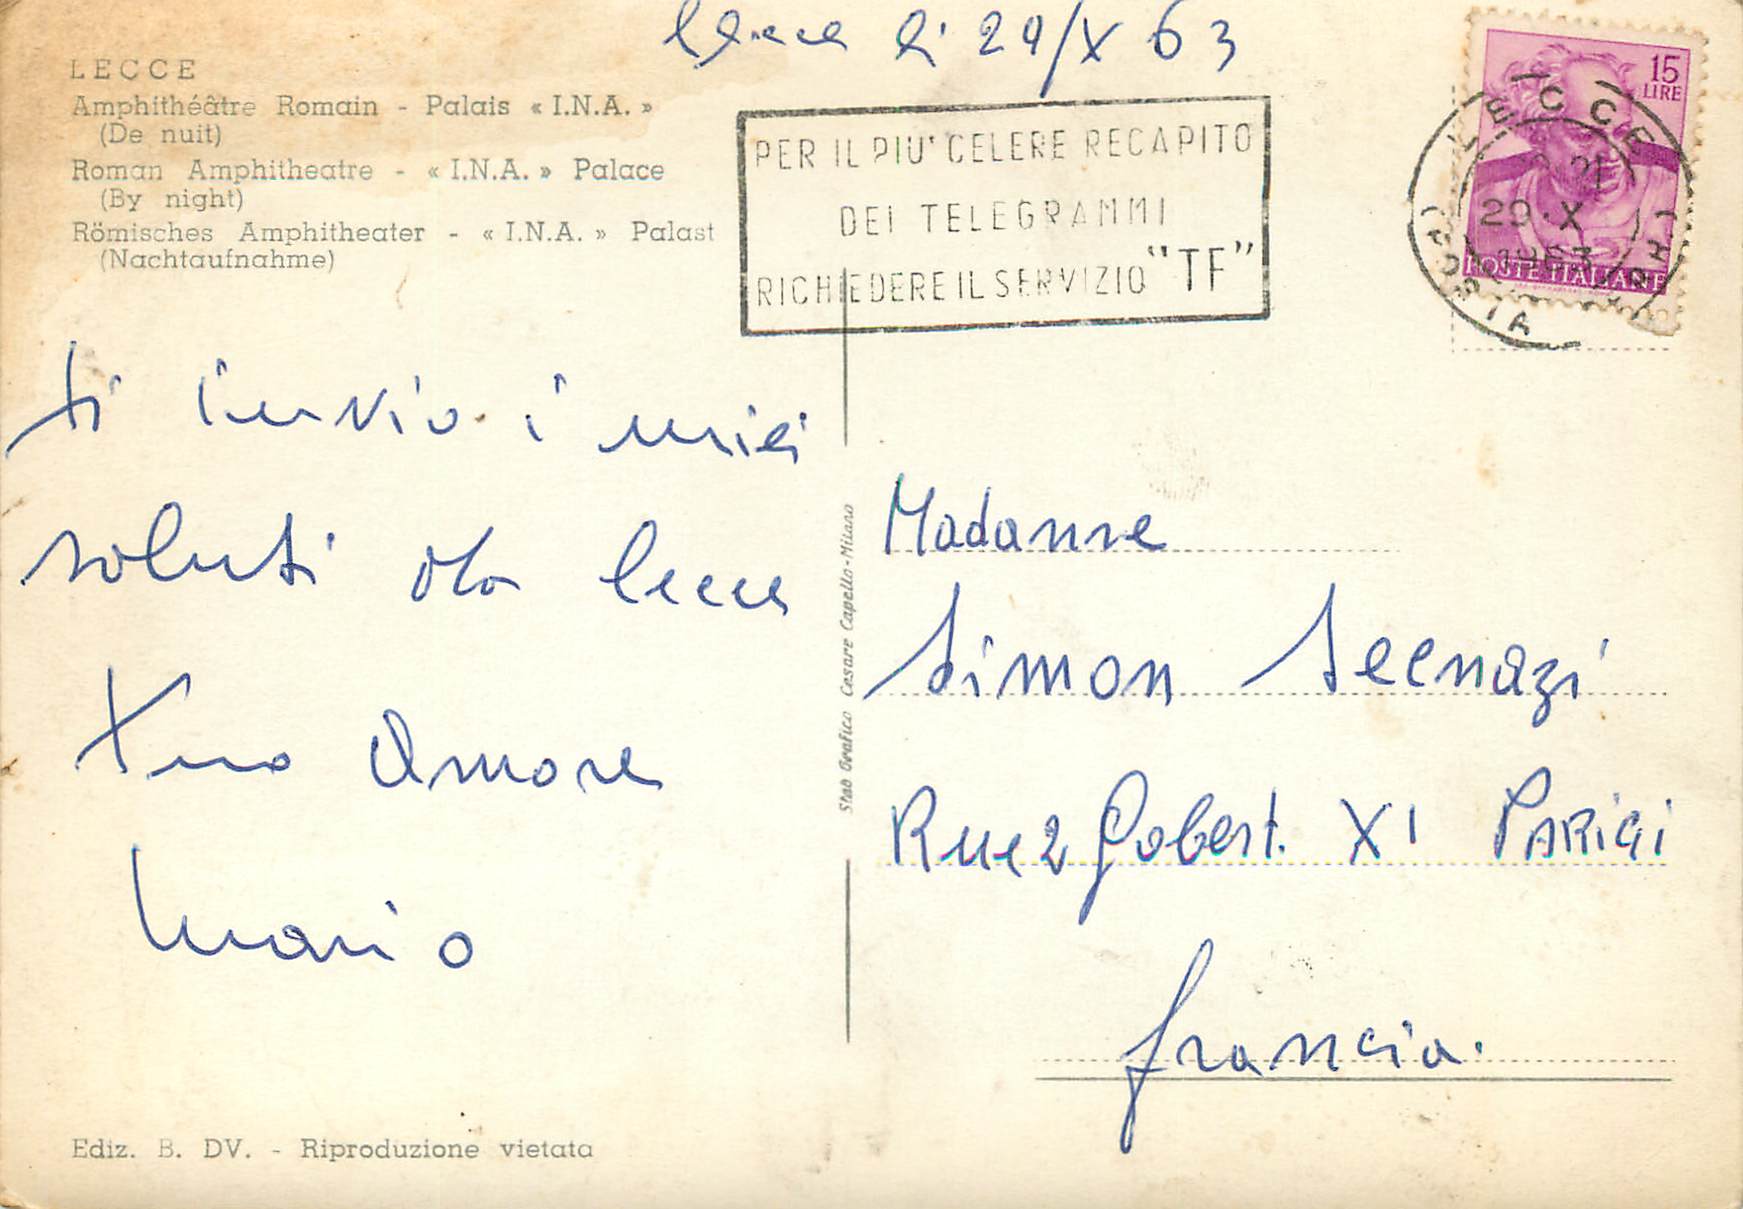 Lecce li 29/X 63
LECCE
Amphithéâtre Romain - Palais « I.N.A. »
(De nuit)
Roman Amphitheatre - « I.N.A. » Palace
(By night)
Römisches Amphitheater - « I.N.A. » Palast
(Nachtaufnahme)
PER IL PIU' CELERE RECAPITO
DEI TELEGRAMMI
RICHIEDERE IL SERVIZIO "TF"
15
LIRE
POSTE ITALIANE
LECCE
29·X
1963
ti invio i miei
saluti da Lecce
Tuo Amore
Mario
Stab Grafico Cesare Capello-Milano
Madame
Simon
Rue 2 Gobert. XI PARIGI
francia.
Ediz. B. DV. - Riproduzione vietata